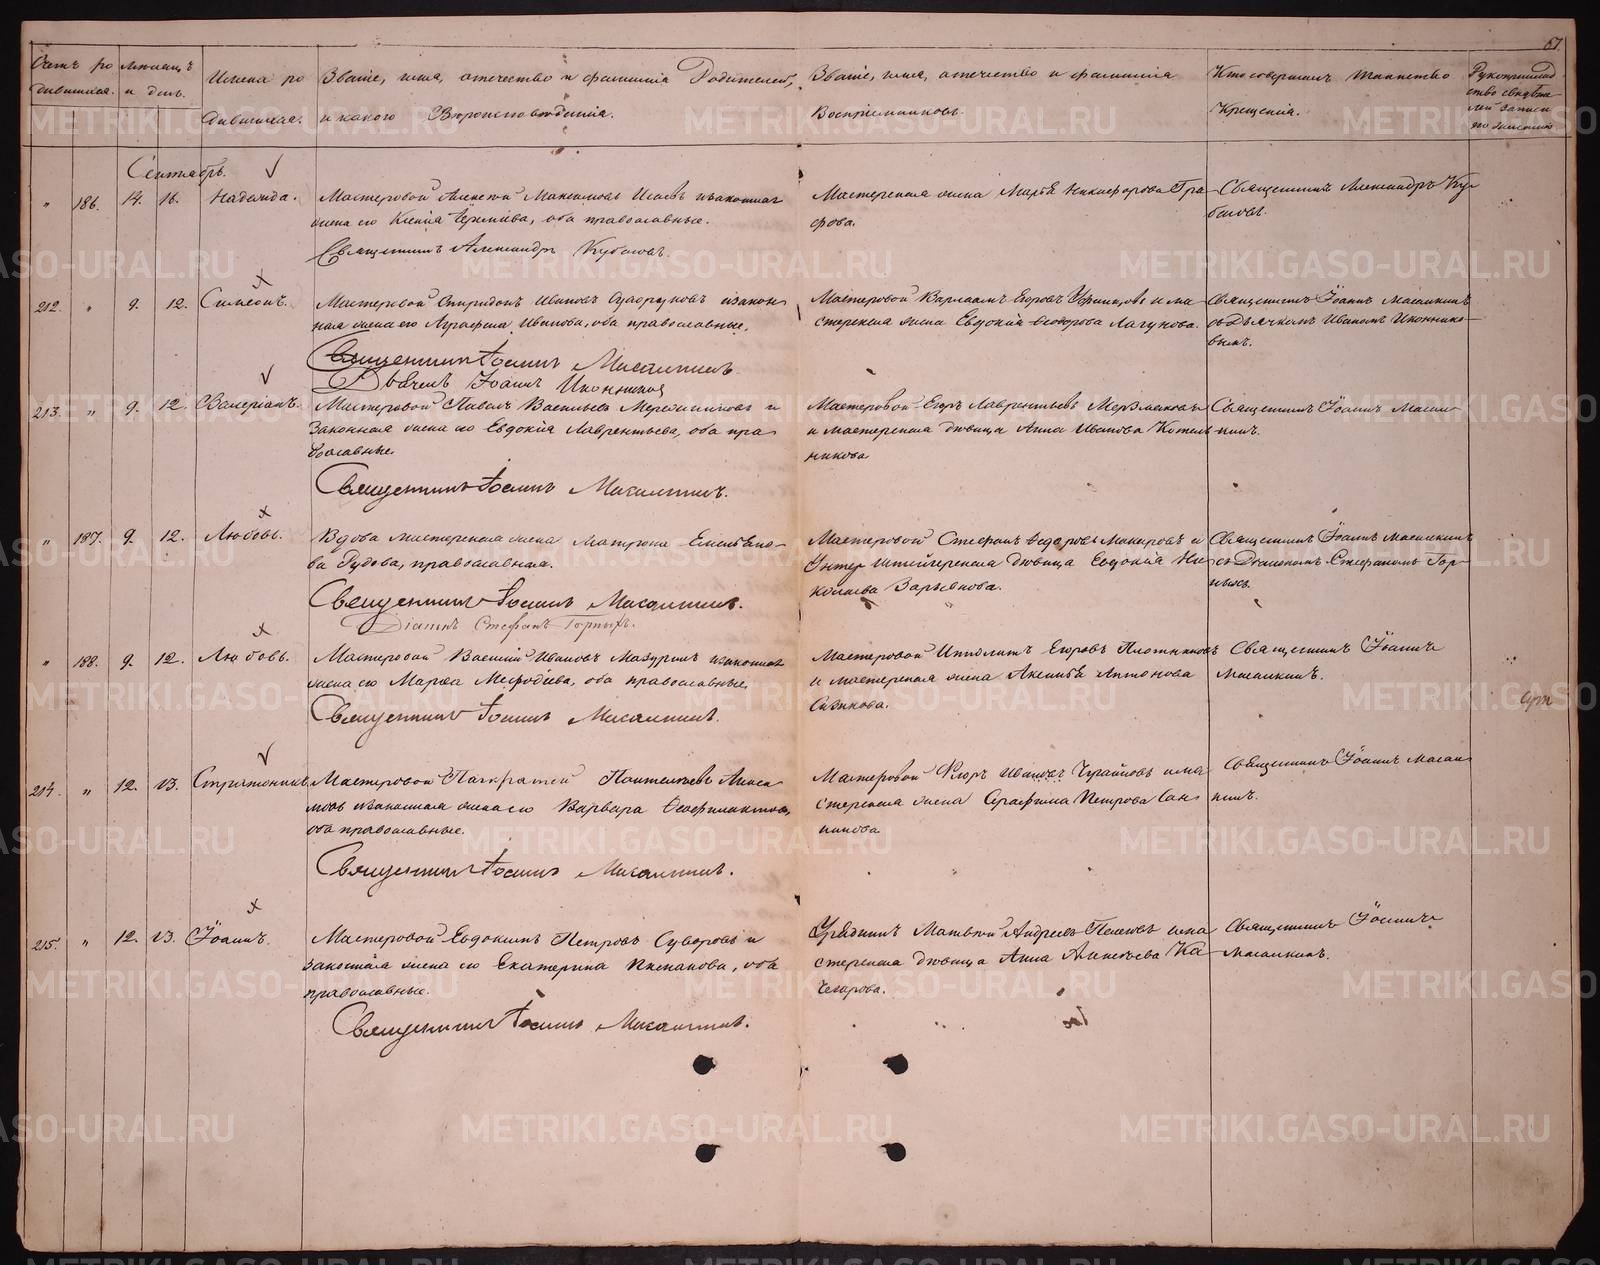 67.
Счетъ ро
дившихся.
Мѣсяцъ
и день.
Имена ро
дившихся.
Званіе, имя, отчество и фамилія Родителей,
и какого Вѣроисповѣданія.
Званіе, имя, отчество и фамилія
Воспріемниковъ.
Кто совершалъ таинство
Крещенія.
Рукоприклад
ство свидѣте
лей записи
по желанію
Сентябрь.
" 186. 14. 16. Надежда.
Мастеровой Алексѣй Максимовъ Исаевъ и законная
жена его Ксенія, оба православные.
Священникъ Александръ Кубасовъ.
Мастерская жена Марѳа Никифорова Гра
фова.
Священникъ Александръ Ку
басовъ.
212. " 9. 12. Симеонъ.
Мастеровой Спиридонъ Ивановъ и закон
ная жена его Аграфена Иванова, оба православные.
Священникъ Іоаннъ Масалкинъ
Дьячекъ Іоаннъ Иконниковъ
Мастеровой Варлаамъ Егоровъ и ма
стерская жена Евдокія Ѳеодорова Лагунова.
Священникъ Іоаннъ Масалкинъ
съ Дьячкомъ Иваномъ Иконнико
вымъ.
213. " 9. 12. Валеріанъ.
Мастеровой Павелъ Васильевъ и
законная жена его Евдокія Лаврентьева, оба пра
вославные.
Священникъ Іоаннъ Масалкинъ.
Мастеровой Егоръ Лаврентьевъ
и мастерская дѣвица Анна Иванова Котель
никова
Священникъ Іоаннъ Масал
кинъ.
" 187. 9. 12. Любовь.
Вдова мастерская жена Матрона Емельяно
ва Рудова, православная.
Священникъ Іоаннъ Масалкинъ.
Діаконъ Стефанъ Горныхъ.
Мастеровой Стефанъ Ѳедоровъ Макаровъ и
Унтеръ Штейгерская дѣвица Евдокія Ни
колаева Зарьянова.
Священникъ Іоаннъ Масалкинъ
съ Діакономъ Стефаномъ Гор
ныхъ.
" 188. 9. 12. Любовь.
Мастеровой Василій Ивановъ Мазуринъ и законная
жена его Марѳа Меѳодіева, оба православные.
Священникъ Іоаннъ Масалкинъ.
Мастеровой Ипполитъ Егоровъ Плотниковъ
и мастерская жена Аксинья Антонова
Сизикова.
Священникъ Іоаннъ
Масалкинъ.
214. " 12. 13. Стратоникъ.
Мастеровой Панкратій Пантелѣевъ
и законная жена его Варвара Ѳеофилактова,
оба православные.
Священникъ Іоаннъ Масалкинъ.
Мастеровой Флоръ Ивановъ и ма
стерская жена Серафима Петрова Сан
никова
Священникъ Іоаннъ Масал
кинъ.
215. " 12. 13. Іоаннъ.
Мастеровой Евдокимъ Петровъ Суворовъ и
законная жена его Екатерина, оба
православные.
Священникъ Іоаннъ Масалкинъ.
Урядникъ Матвѣй Андреевъ и ма
стерская дѣвица Анна Алексѣева Ка
чегарова.
Священникъ Іоаннъ
Масалкинъ.
METRIKI.GASO-URAL.RU